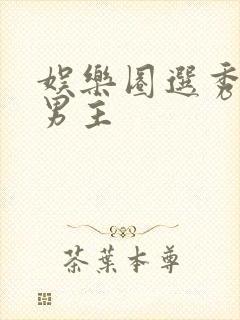 娛樂圈選秀
男主
茶葉本尊